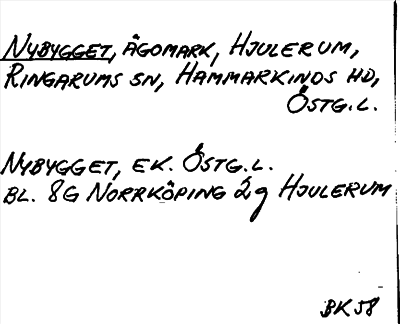 NYBYGGET, ÄGOMARK, HJULERUM,
RINGARUMS SN, HAMMARKINDS HD,
ÖSTG.L.
NYBYGGET, EK. ÖSTG.L.
BL. 8G NORRKÖPING 2g HJULERUM
BK58